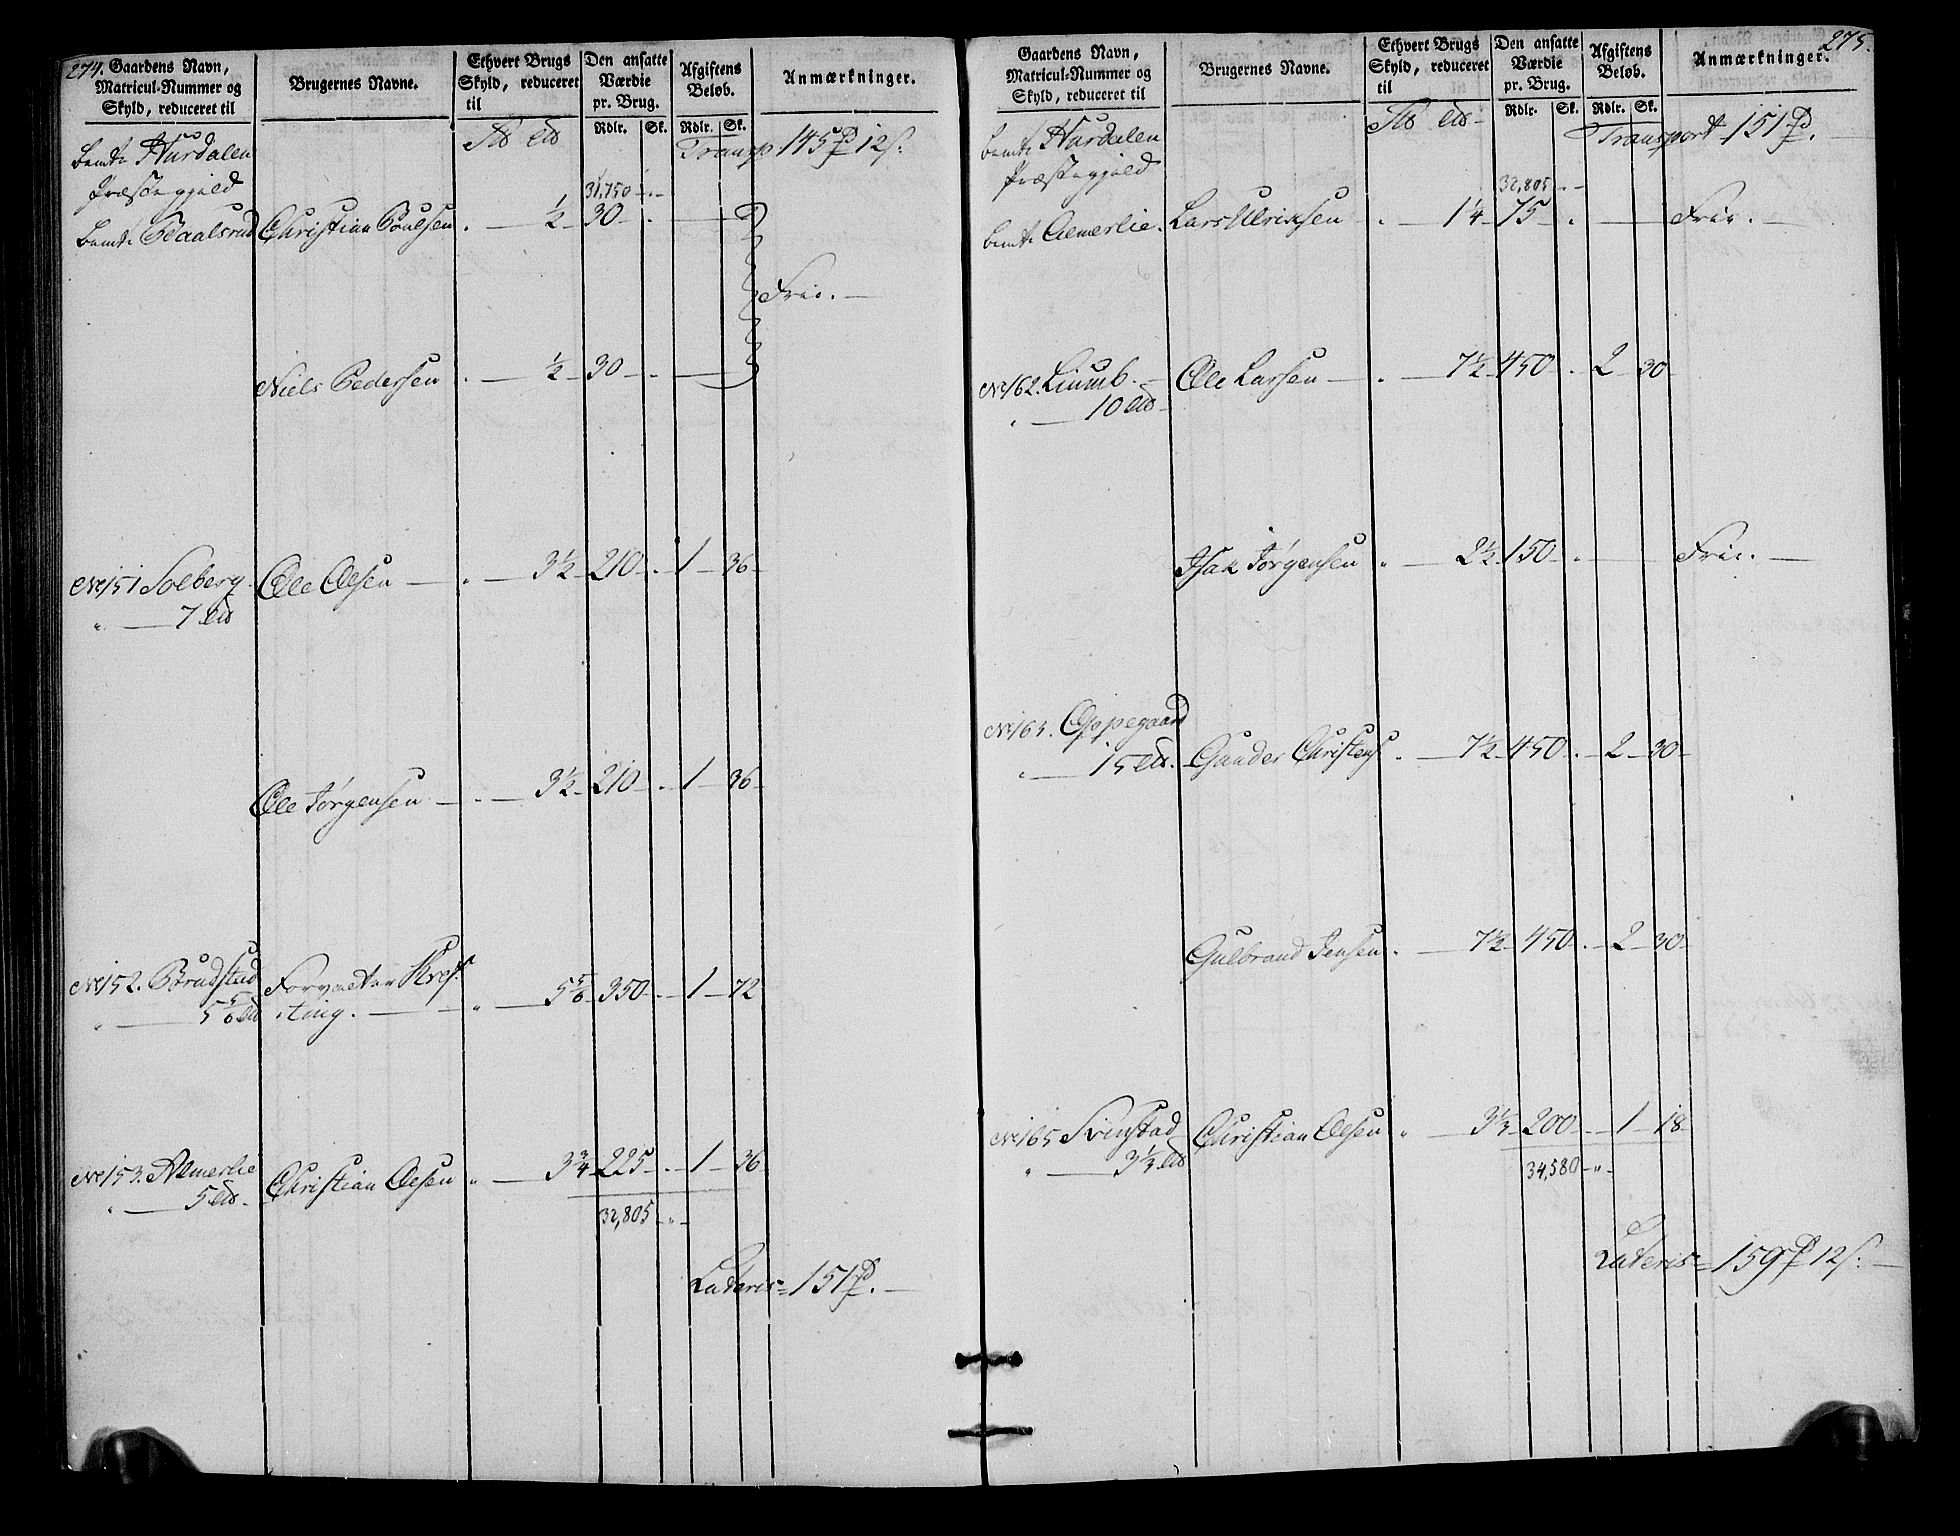 274.
Gaardens Navn, Matricul-Nummer og Skyld, reduceret til
Brugernes Navne.
Ethvert Brugs Skyld, reduceret til
Den ansatte Værdie pr. Brug.
Afgiftens Beløb.
Anmærkninger.
Rdlr. Sk. Rdlr. Sk.
Hurdalen Transp. 145 12
Præstegjeld
31,750
Christian Poulsen ½ 30
Frie.
Niels Pedersen ½ 30
No 151 Solberg Ole Olsen 3½ 210 1 36
7
Ole Jørgensen 3½ 210 1 36
No 152. Brudstad Forvalter
5 5/6 5 5/6 350 1 72
No 153. Almerlie Christian Olsen 3¾ 225 1 36
5
32,805
Lateris 151
275.
Gaardens Navn, Matricul-Nummer og Skyld, reduceret til
Brugernes Navne.
Ethvert Brugs Skyld, reduceret til
Den ansatte Værdie pr. Brug.
Afgiftens Beløb.
Anmærkninger.
Rdlr. Sk. Rdlr. Sk.
Hurdalen Transport 151
Præstegjeld
32,805
Almerlie. Lars Ulrichsen 1¼ 75 Frie.
No 162. Ole Larsen 7½ 450 2 30
10
Isak Jørgensen 2½ 150 Frie.
No 163. Oppegaard
15 Gunder Christens 7½ 450 2 30
Gulbrand Jensen 7½ 450 2 30
No 165 Svinstad Christian Olsen 3⅓ 200 1 18
3⅓
34,580
Lateris 159 12